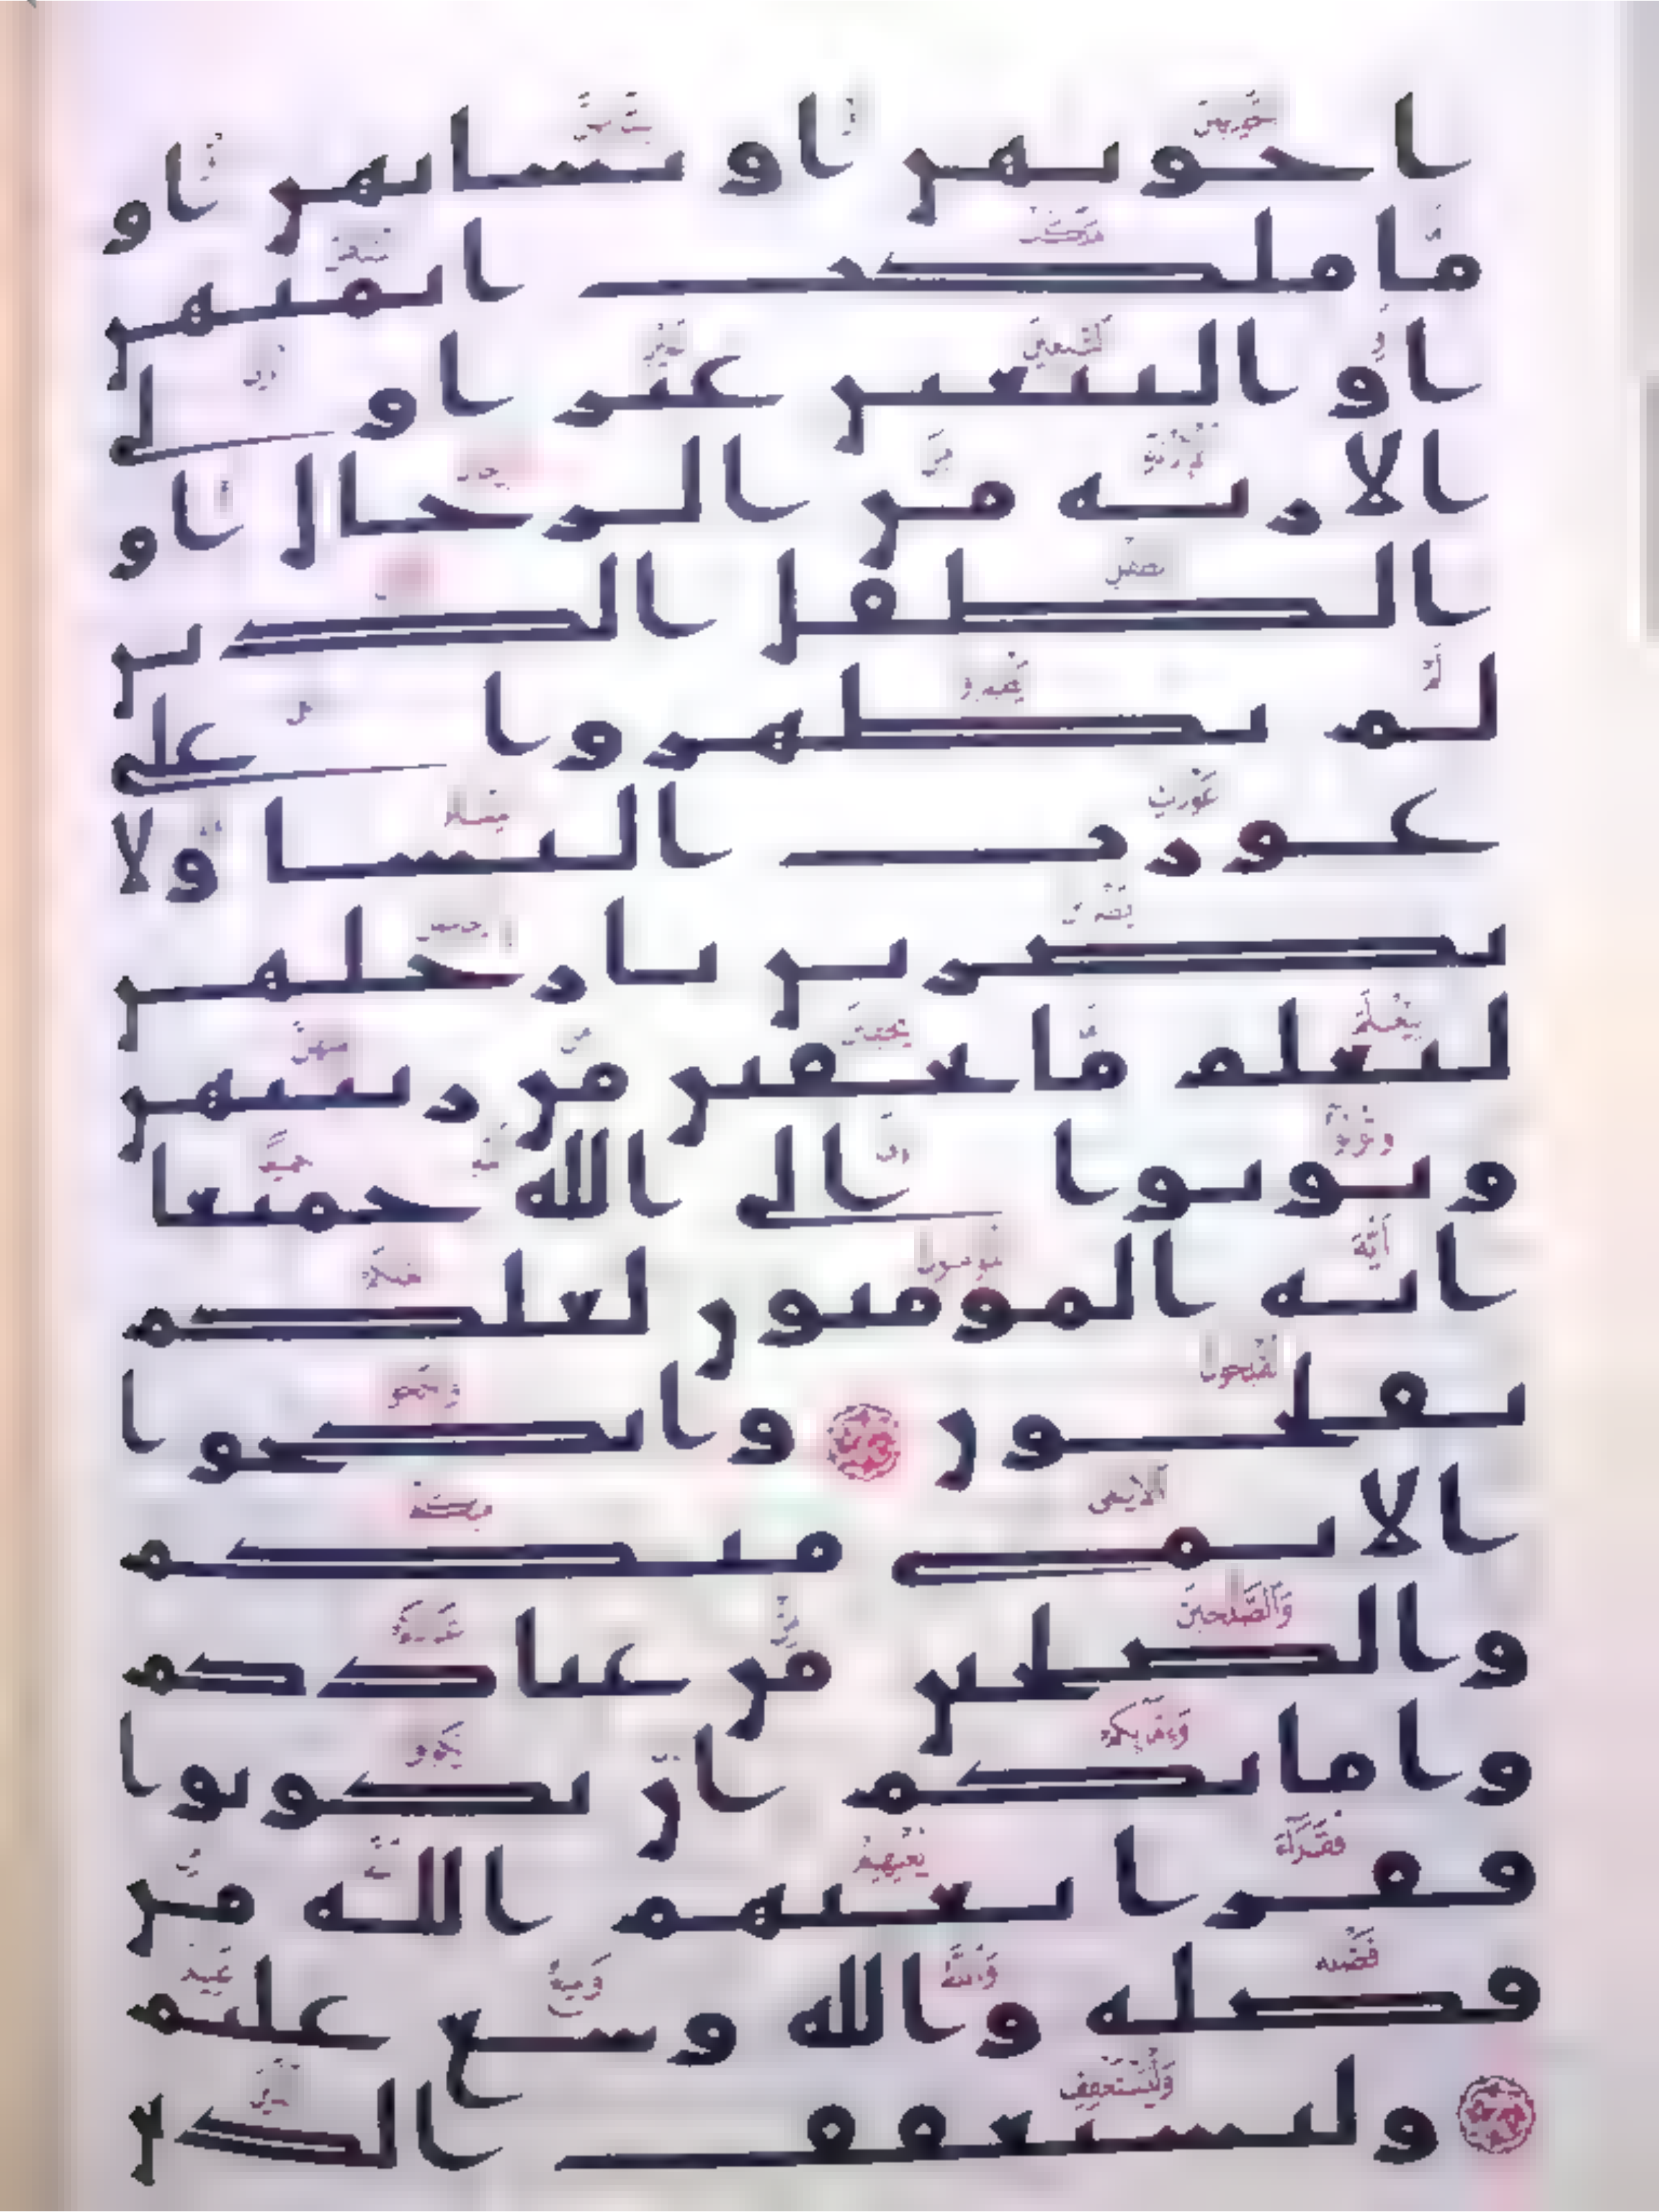 اخوتهن او نسائهن او
ما ملكت ايمنهن
او التبعين غير اولي
الاربة من الرجال او
الطفل الذين
لم يظهروا على
عورت النسا ولا
يضربن بارجلهن
ليعلم ما يخفين من زينتهن
وتوبوا الى الله جميعا
ايه المومنون لعلكم
تفلحون وانكحوا
الايمى منكم
والصلحين من عبادكم
وامائكم ان يكونوا
فقرا يغنهم الله من
فضله والله وسع عليم
وليستعفف الذين